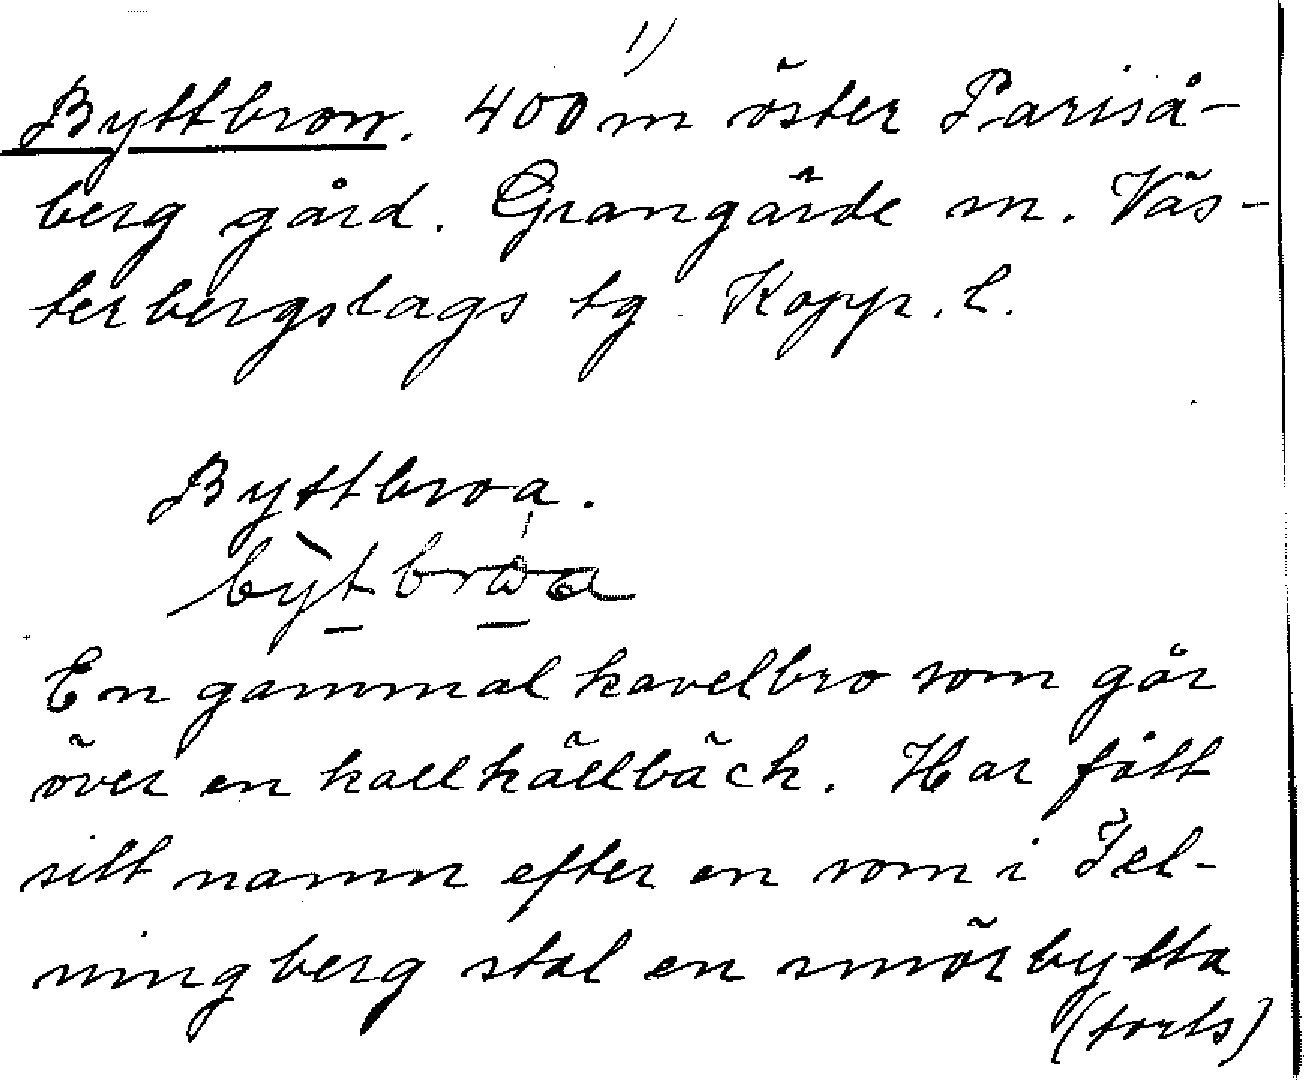 1)
Byttbron. 400 m öster Pariså-
berg gård. Grangärde sn. Väs-
terbergslags tg. Kopp. l.
Byttbroa.
bỳtbròa
En gammal kavelbro som går
över en kallkällbäck. Har fått
sitt namn efter en som i
ningberg stal en smörbytta
(forts)